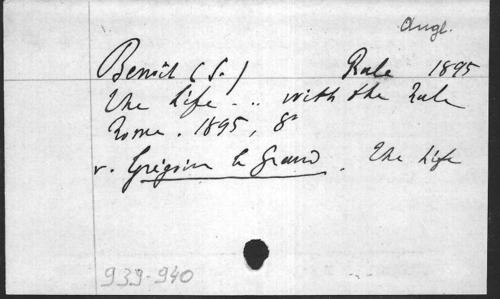 Angl.
Benoît (S.) Rule 1895
The Life ... with the Rule
Rome. 1895, 8°
v. Grégoire le Grand. The Life
939-940